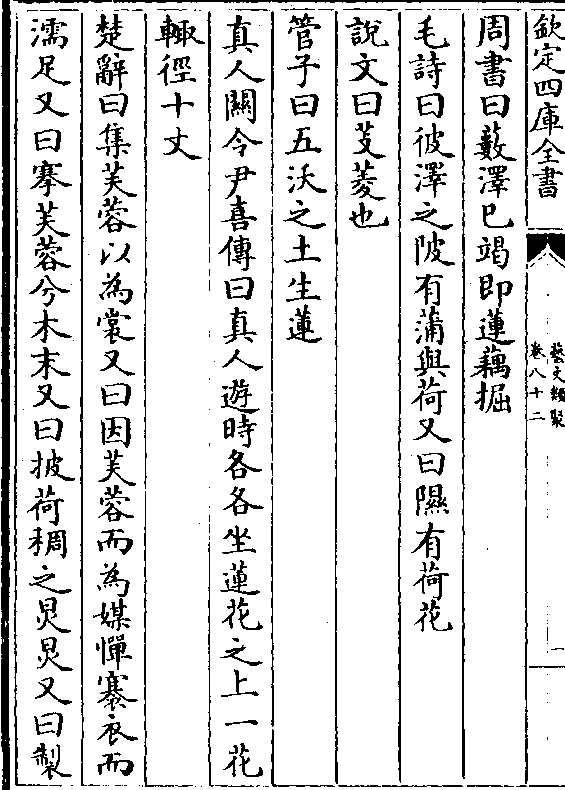 欽定四庫全書
藝文類聚
卷八十二
一
周書曰藪澤已竭即蓮藕掘
毛詩曰彼澤之陂有蒲與荷又曰隰有荷花
說文曰芰菱也
管子曰五沃之土生蓮
真人關令尹喜傳曰真人遊時各各坐蓮花之上一花
輙徑十丈
楚辭曰集芙蓉以為裳又曰因芙蓉而為媒憚褰衣而
濡足又曰搴芙蓉兮木末又曰披荷稠之炅炅又曰製